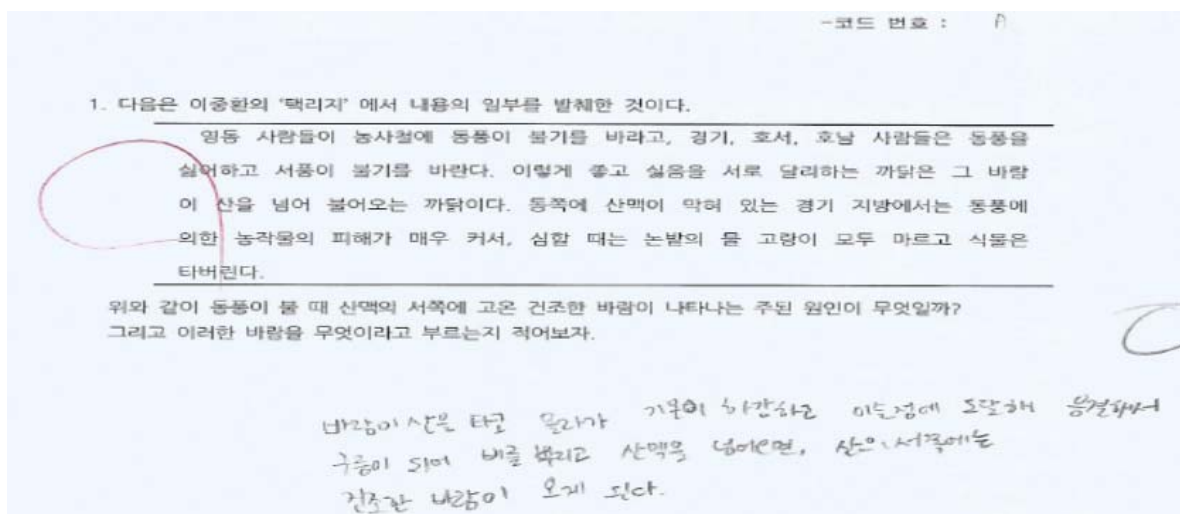 -코드 번호 : A
1. 다음은 이중환의 '택리지' 에서 내용의 일부를 발췌한 것이다.
영동 사람들이 농사철에 동풍이 불기를 바라고, 경기, 호서, 호남 사람들은 동풍을
싫어하고 서풍이 불기를 바란다. 이렇게 좋고 싫음을 서로 달리하는 까닭은 그 바람
이 산을 넘어 불어오는 까닭이다. 동쪽에 산맥이 막혀 있는 경기 지방에서는 동풍에
의한 농작물의 피해가 매우 커서, 심할 때는 논밭의 물 고랑이 모두 마르고 식물은
타버린다.
위와 같이 동풍이 불 때 산맥의 서쪽에 고온 건조한 바람이 나타나는 주된 원인이 무엇일까?
그리고 이러한 바람을 무엇이라고 부르는지 적어보자.
바람이 산을 타고 올라가 기온이 하강하고 이슬점에 도달해 응결하여
구름이 되어 비를 뿌리고 산맥을 넘어오면, 산의 서쪽에는
건조한 바람이 오게 된다.